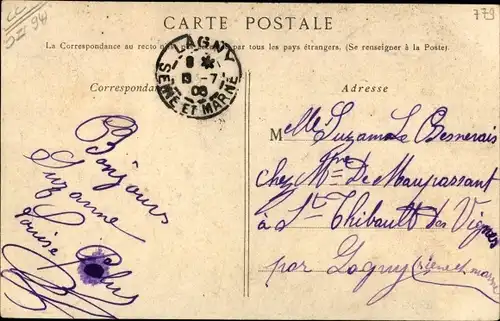 CARTE POSTALE
La Correspondance au recto n'est pas par tous les pays étrangers. (Se renseigner à la Poste).
Correspondan
Adresse
LAGNY
8
13 -7
08
SEINE ET MARNE
779
94
Bonjours
Suzanne
Louise
Melle Suzanne Le Besnerais
chez Mme De Maupassant
à St Thibault des Vignes
par Lagny (Seine et marne